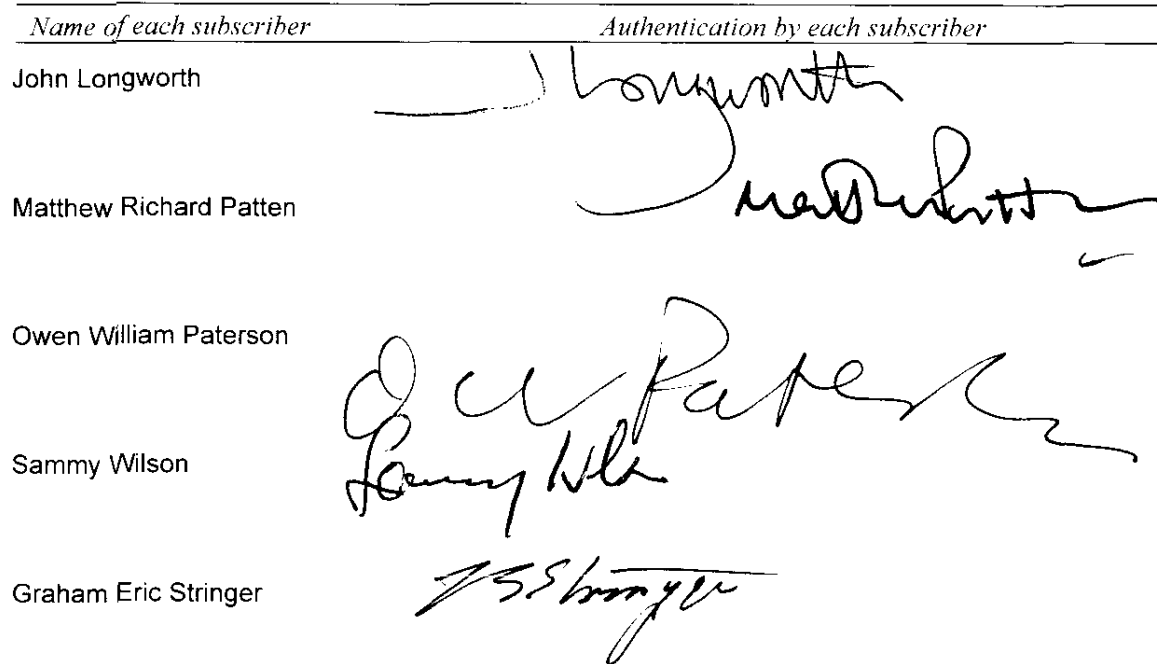 Name of each subscriber Authentication by each subscriber
John Longworth JLongworth
Matthew Richard Patten
Owen William Paterson O W Paterson
Sammy Wilson Sammy Wilson
Graham Eric Stringer Stringer